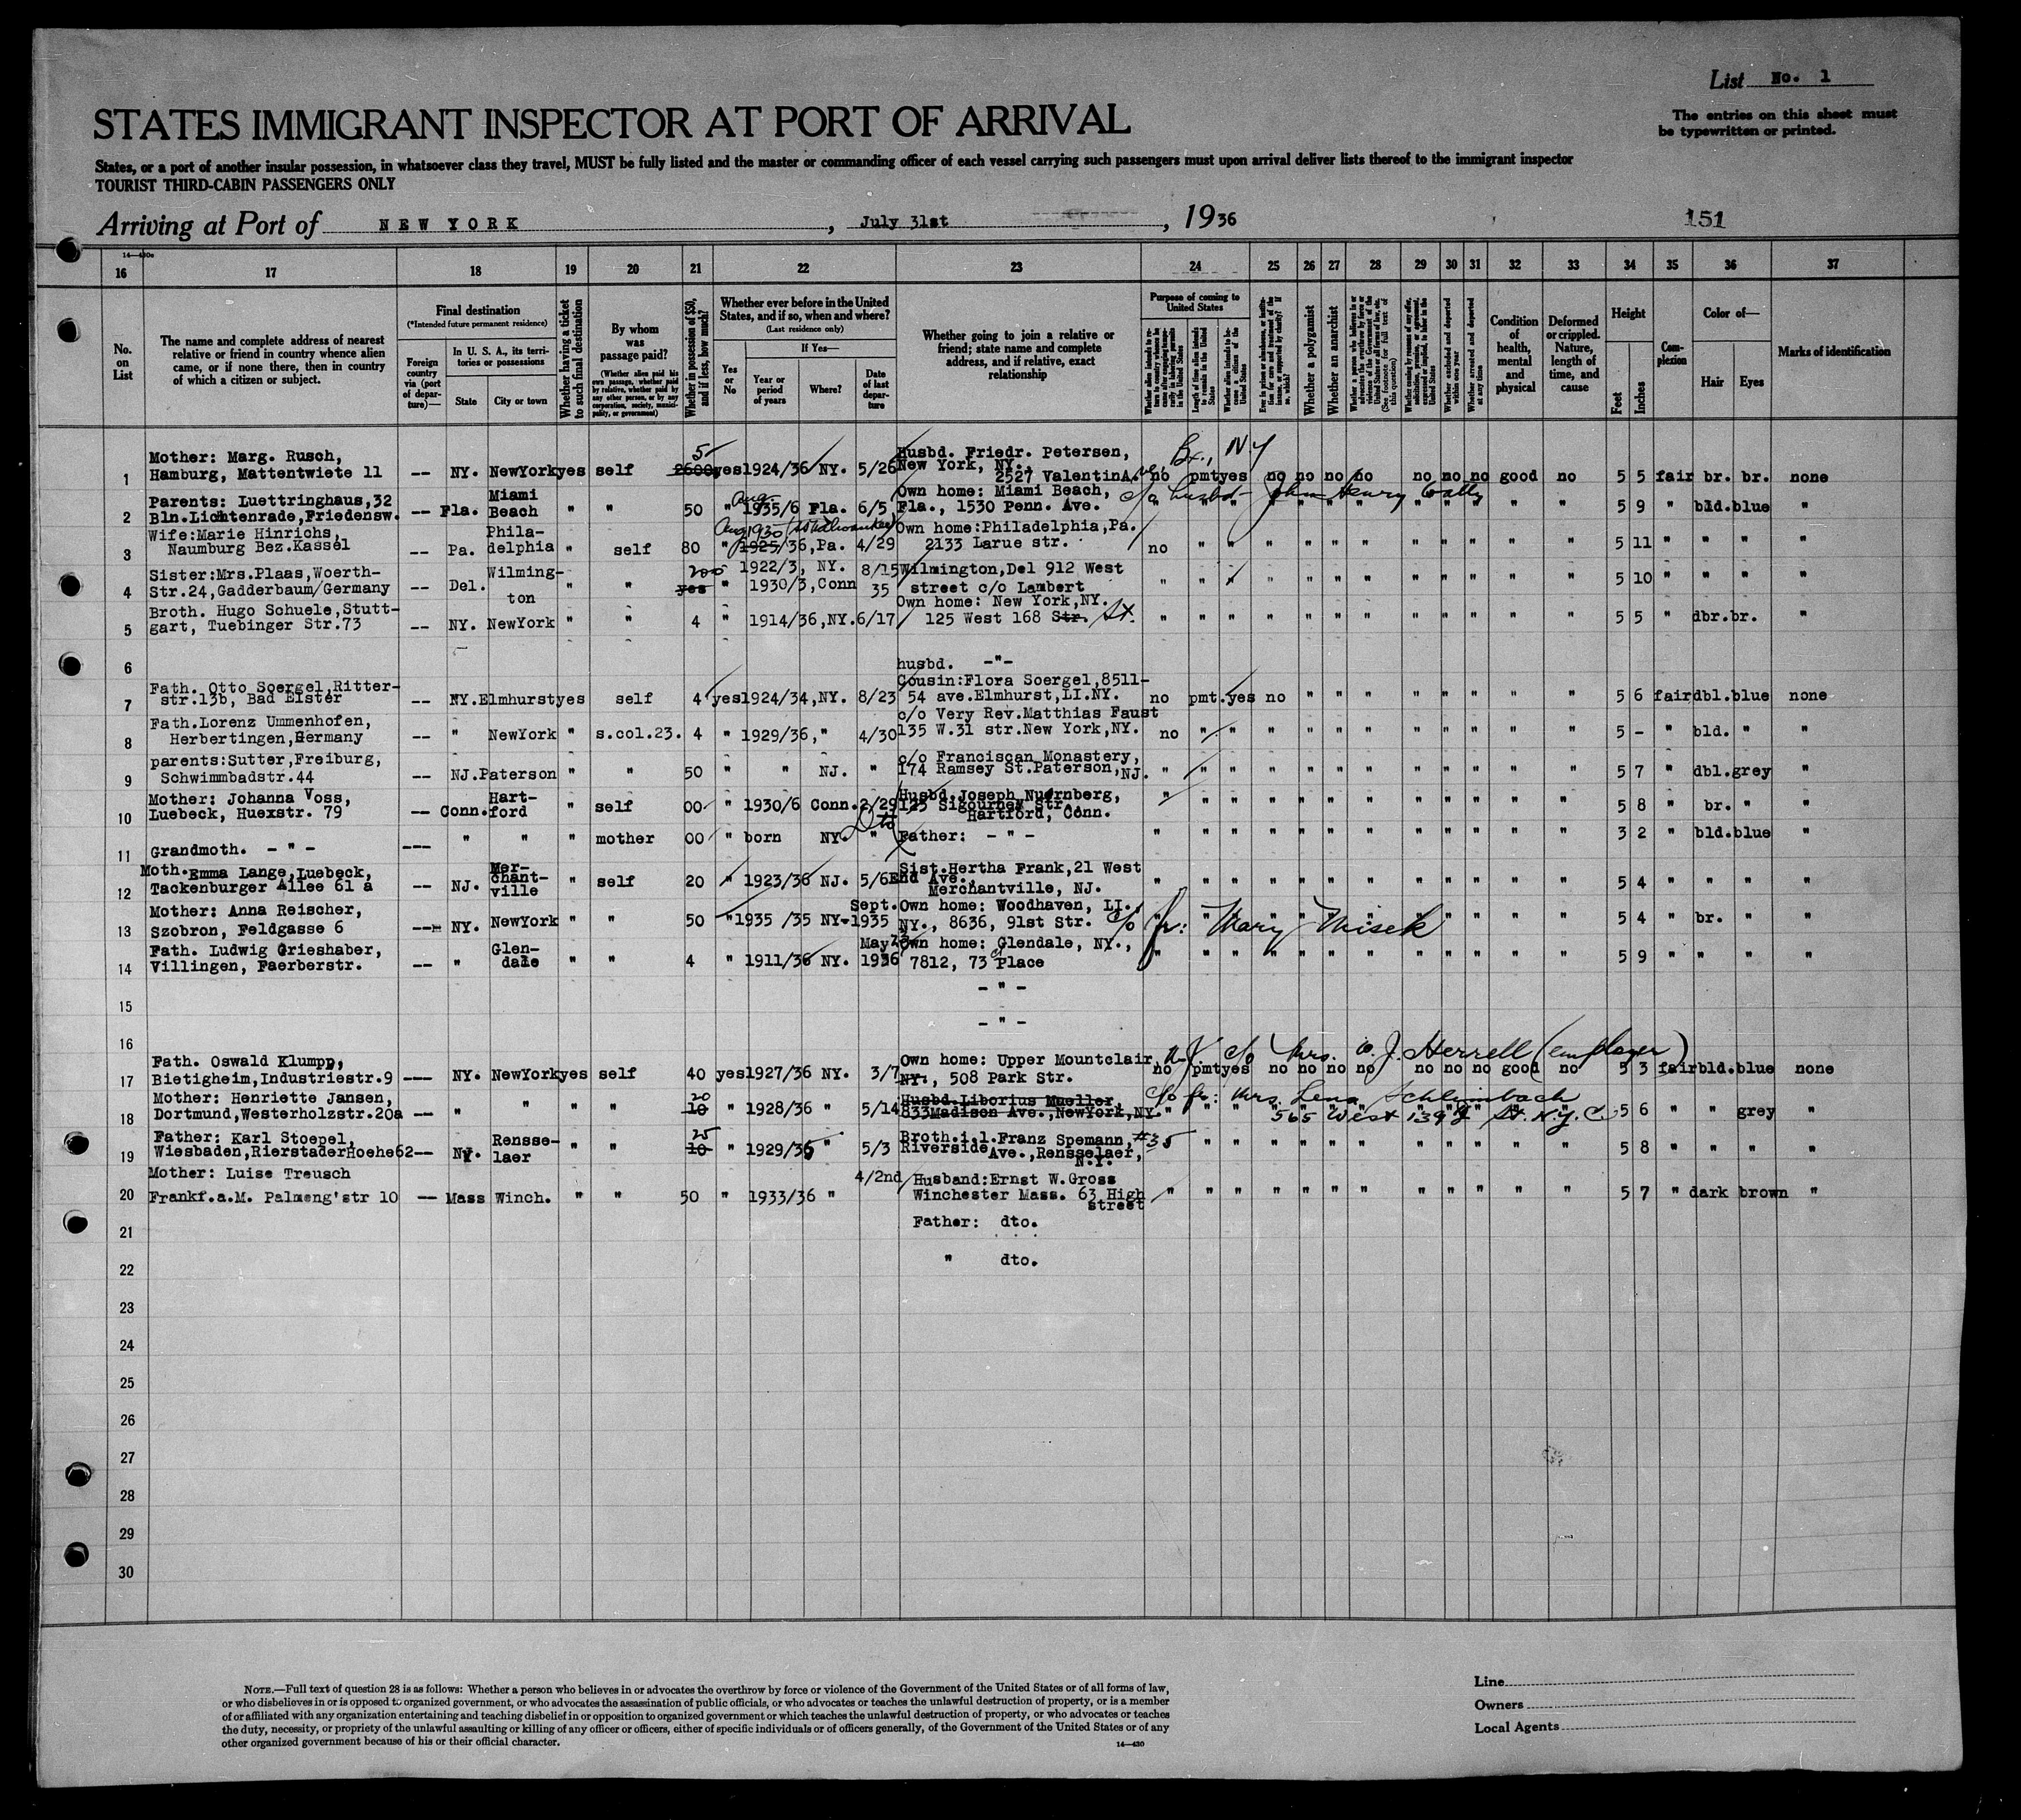 List No. 1
STATES IMMIGRANT INSPECTOR AT PORT OF ARRIVAL
The entries on this sheet must
be typewritten or printed.
States, or a port of another insular possession, in whatsoever class they travel, MUST be fully listed and the master or commanding officer of each vessel carrying such passengers must upon arrival deliver lists thereof to the immigrant inspector
TOURIST THIRD-CABIN PASSENGERS ONLY
Arriving at Port of NEW YORK, July 31st, 1936
151
14—430a
16 17 18 19 20 21 22 23 24 25 26 27 28 29 30 31 32 33 34 35 36 37
No. on List
The name and complete address of nearest relative or friend in country whence alien came, or if none there, then in country of which a citizen or subject.
Final destination
(*Intended future permanent residence)
Foreign country via (port of departure)—
In U. S. A., its territories or possessions
State
City or town
Whether having a ticket to such final destination
By whom was passage paid?
(Whether alien paid his own passage, whether paid by relative, whether paid by any other person, or by any corporation, society, municipality, or government)
Whether in possession of $50, and if less, how much?
Whether ever before in the United States, and if so, when and where?
(Last residence only)
Yes or No
If Yes—
Year or period of years
Where?
Date of last departure
Whether going to join a relative or friend; state name and complete address, and if relative, exact relationship
Purpose of coming to United States
Length of time alien intends to remain in the United States
Whether alien intends to become a citizen of the United States
Whether a polygamist
Whether an anarchist
(See footnote for full text of this question)
Whether excluded and deported within one year
Whether arrested and deported at any time
Condition of health, mental and physical
Deformed or crippled. Nature, length of time, and cause
Height
Feet
Inches
Complexion
Color of—
Hair
Eyes
Marks of identification
1 Mother: Marg. Rusch, Hamburg, Mattentwiete 11 -- NY. NewYork yes self 2600 5 yes 1924/36 NY. 5/26 Husbd. Friedr. Petersen, New York, NY., 2527 ValentinA.ve, Bx., NY no pmt yes no no no no no no no good no 5 5 fair br. br. none
2 Parents: Luettringhaus,32 Bln.Lichtenrade,Friedensw. -- Fla. Miami Beach " " 50 " Aug. 1935/6 Fla. 6/5 Own home: Miami Beach, Fla., 1530 Penn. Ave. c/o husbd- John Henry " " " " " " " " " " " " 5 9 " bld. blue "
3 Wife:Marie Hinrichs, Naumburg Bez.Kassel -- Pa. Philadelphia " self 80 " Aug 1930 (Milwaukee) 1925/36,Pa. 4/29 Own home:Philadelphia,Pa. 2133 Larue str. no " " " " " " " " " " " 5 11 " " " "
4 Sister:Mrs.Plaas,Woerth-Str.24,Gadderbaum/Germany -- Del. Wilmington " " yes 200 " 1922/3, NY. 1930/3,Conn 8/15 35 Wilmington,Del 912 West street c/o Lambert " " " " " " " " " " " " 5 10 " " " "
5 Broth. Hugo Schuele,Stuttgart, Tuebinger Str.73 -- NY. NewYork " " 4 " 1914/36,NY. 6/17 Own home: New York,NY. 125 West 168 Str. St. " " " " " " " " " " " " 5 5 " dbr. br. "
6 husbd. -"-
7 Fath. Otto Soergel,Ritterstr.13b, Bad Elster -- NY. Elmhurst yes self 4 yes 1924/34,NY. 8/23 Cousin:Flora Soergel,8511-54 ave.Elmhurst,LI.NY. no pmt. yes no " " " " " " " " 5 6 fair dbl. blue none
8 Fath.Lorenz Ummenhofen, Herbertingen,Germany -- " NewYork " s.col.23. 4 " 1929/36," 4/30 c/o Very Rev.Matthias Faust 135 W.31 str.New York,NY. no " " " " " " " " " " " 5 - " bld. " "
9 parents:Sutter,Freiburg, Schwimmbadstr.44 -- NJ. Paterson " " 50 " " NJ. " c/o Franciscan Monastery, 174 Ramsey St.Paterson,NJ. " " " " " " " " " " " " 5 7 " dbl. grey "
10 Mother: Johanna Voss, Luebeck, Huexstr. 79 -- Conn. Hartford " self 00 " 1930/6 Conn. 2/29 Husbd.Joseph Nuernberg, 123 Sigourney Str., Hartford, Conn. " " " " " " " " " " " " 5 8 " br. " "
11 Grandmoth. - " - --- " " " mother 00 " born NY. Dto " Father: - " - " " " " " " " " " " " " 3 2 " bld. blue "
12 Moth.Emma Lange,Luebeck, Tackenburger Allee 61 a -- NJ. Merchantville " self 20 " 1923/36 NJ. 5/6 Sist.Hertha Frank,21 West End Ave., Merchantville, NJ. " " " " " " " " " " " " 5 4 " " " "
13 Mother: Anna Reischer, Szobron, Feldgasse 6 --- NY. NewYork " " 50 " 1935 /35 NY- Sept. 1935 Own home: Woodhaven, LI., NY., 8636, 91st Str. c/o fr: Mary Misek " " " " " " " " " " " " 5 4 " br. " "
14 Fath. Ludwig Grieshaber, Villingen, Faerberstr. -- " Glendale " " 4 " 1911/36 NY. May 23 1936 Own home: Glendale, NY., 7812, 73 Place " " " " " " " " " " " " 5 9 " " " "
15 - " -
16 - " -
17 Fath. Oswald Klumpp, Bietigheim,Industriestr.9 --- NY. NewYork yes self 40 yes 1927/36 NY. 3/7 Own home: Upper Mountclair, NY., 508 Park Str. N.J. c/o Mrs. O. J. Herrell (employer) no pmt yes no no no no no no no good no 5 3 fair bld. blue none
18 Mother: Henriette Jansen, Dortmund,Westerholzstr.20a -- " " " " 10 20 " 1928/36 " 5/14 Husbd.Liborius Mueller, 833Madison Ave.,NewYork,NY. c/o fr: Mrs. Lena Schleimbach 565 West 139 St. N.Y.C. 5 6 " " grey "
19 Father: Karl Stoepel, Wiesbaden,RierstaderHoehe62 -- NY. Rensselaer " " 10 25 " 1929/36 " 5/3 Broth.i.l.Franz Spemann, #35 Riverside Ave.,Rensselaer, N.Y. " " " " " " " " " " " 5 8 " " " "
20 Mother: Luise Treusch Frankf.a.M. Palmeng'str 10 -- Mass Winch. " " 50 " 1933/36 " 4/2nd Husband:Ernst W.Gross Winchester Mass. 63 High street " " " " " " " " " " " " 5 7 " dark brown "
21 Father: dto.
22 " dto.
23
24
25
26
27
28
29
30
NOTE.—Full text of question 28 is as follows: Whether a person who believes in or advocates the overthrow by force or violence of the Government of the United States or of all forms of law,
or who disbelieves in or is opposed to organized government, or who advocates the assassination of public officials, or who advocates or teaches the unlawful destruction of property, or is a member
of or affiliated with any organization entertaining and teaching disbelief in or opposition to organized government or which teaches the unlawful destruction of property, or who advocates or teaches
the duty, necessity, or propriety of the unlawful assaulting or killing of any officer or officers, either of specific individuals or of officers generally, of the Government of the United States or of any
other organized government because of his or their official character.
14—430
Line
Owners
Local Agents